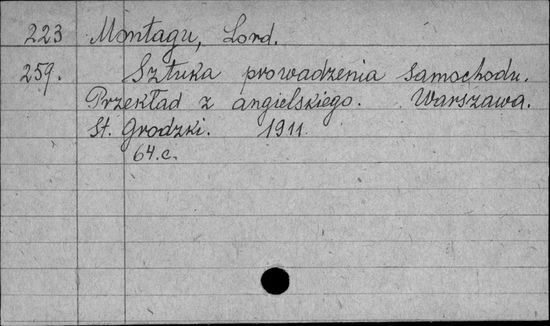 223 Montagu, Lord.
259. Sztuka prowadzenia samochodu.
Przekład z angielskiego. Warszawa.
St. Grodzki. 1911.
64.c.